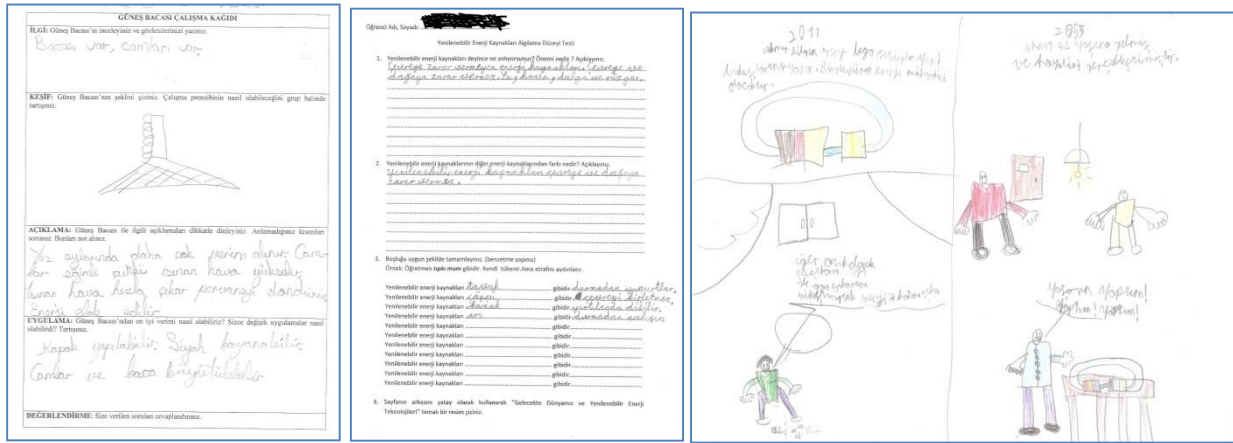 GÜNEŞ BACASI ÇALIŞMA KAĞIDI
İLGİ: Güneş Bacası'nı inceleyiniz ve gözlemlerinizi yazınız.
Bacası var, camları var.
KEŞİF: Güneş Bacası'nın şeklini çiziniz. Çalışma prensibinin nasıl olabileceğini grup halinde
tartışınız.
AÇIKLAMA: Güneş Bacası ile ilgili açıklamaları dikkatle dinleyiniz. Anlamadığınız kısımları
sorunuz. Bunları not alınız.
Yaz aylarında daha çok verim alınır. Cam-
lar eğimli çünkü ısınan hava yükselir.
Isınan hava hızla çıkar pervaneyi döndürür.
Enerji elde edilir.
UYGULAMA: Güneş Bacası'ndan en iyi verimi nasıl alabiliriz? Sizce değişik uygulamalar nasıl
olabilirdi? Tartışınız.
Kapak yapılabilir. Siyah boyanabilir.
Camlar ve baca büyütülebilir
DEĞERLENDİRME: Size verilen soruları cevaplandırınız.
Öğrenci Adı, Soyadı:
Yenilenebilir Enerji Kaynakları Algılama Düzeyi Testi
1. Yenilenebilir enerji kaynakları deyince ne anlıyorsunuz? Önemi nedir? Açıklayınız.
Çevreye zarar vermeyen enerji kaynakları. Çevreye ve
doğaya zarar vermez. Su, hava, dalga ve rüzgar.
2. Yenilenebilir enerji kaynaklarının diğer enerji kaynaklarından farkı nedir? Açıklayınız.
Yenilenebilir enerji kaynakları çevreye ve doğaya
zarar vermez.
3. Boşluğu uygun şekilde tamamlayınız. (benzetme yapınız)
Örnek: Öğretmen tıpkı mum gibidir. Kendi tükenir. Ama etrafını aydınlatır.
Yenilenebilir enerji kaynakları tavuk gibidir durmadan yumurtlar.
Yenilenebilir enerji kaynakları çöpçü gibidir çevreyi kirletmez.
Yenilenebilir enerji kaynakları kazak gibidir yırtılsada dikilir.
Yenilenebilir enerji kaynakları arı gibidir durmadan çalışır.
Yenilenebilir enerji kaynakları gibidir
Yenilenebilir enerji kaynakları gibidir
Yenilenebilir enerji kaynakları gibidir
Yenilenebilir enerji kaynakları gibidir
Yenilenebilir enerji kaynakları gibidir
Yenilenebilir enerji kaynakları gibidir
4. Sayfanın arkasını yatay olarak kullanarak "Gelecekte Dünyamız ve Yenilenebilir Enerji
Teknolojileri" temalı bir resim çiziniz.
2011
2053
ve hayalini gerçekleştirmiştir.
yaşasın yaptım!
yaptım! yaptım!